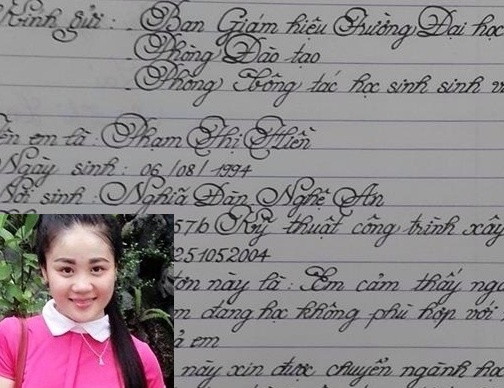 Kính gửi : - Ban Giám hiệu Trường Đại học
- Phòng Đào tạo
- Phòng Công tác học sinh sinh v
ên em là : Phạm Thị Hiền
Ngày sinh : 06/08/1994
Nơi sinh : Nghĩa Đàn, Nghệ An
57b Kỹ thuật công trình xây
251052004
ơn này là : Em cảm thấy ngà
m đang học không phù hợp với
ả em
này xin được chuyển ngành họ